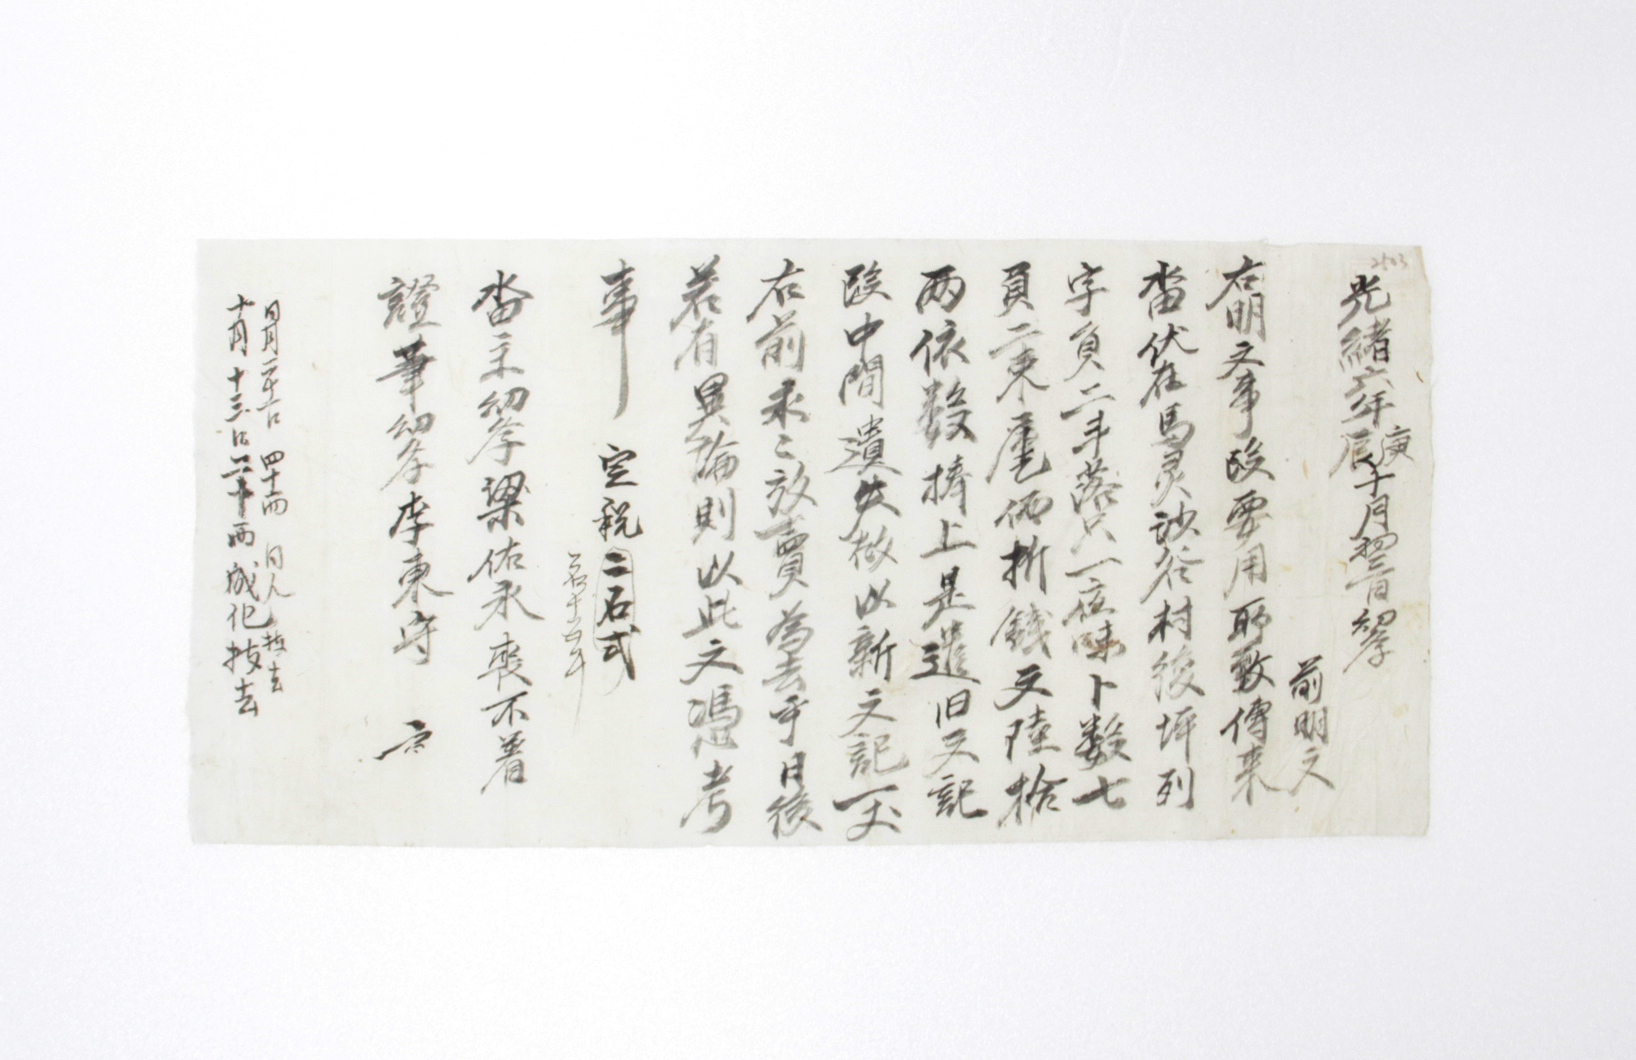 光緒六年庚辰十月初三日幼學
前明文
右明文事段要用所致傳來
畓伏在馬灵沙谷村後坪列
字負二斗落只一夜味卜數七
負二束庫価折錢文陸拾
兩依數捧上是遣旧文記
段中間遺失故以新文記一丈
右前永〻放賣爲去乎日後
若有異論則以此文憑考
事 定稅二石式
畓主幼學梁佑永喪不着
證筆幼學李東守
同月 四十兩 同人 推去
十月十三日二十兩成化技去